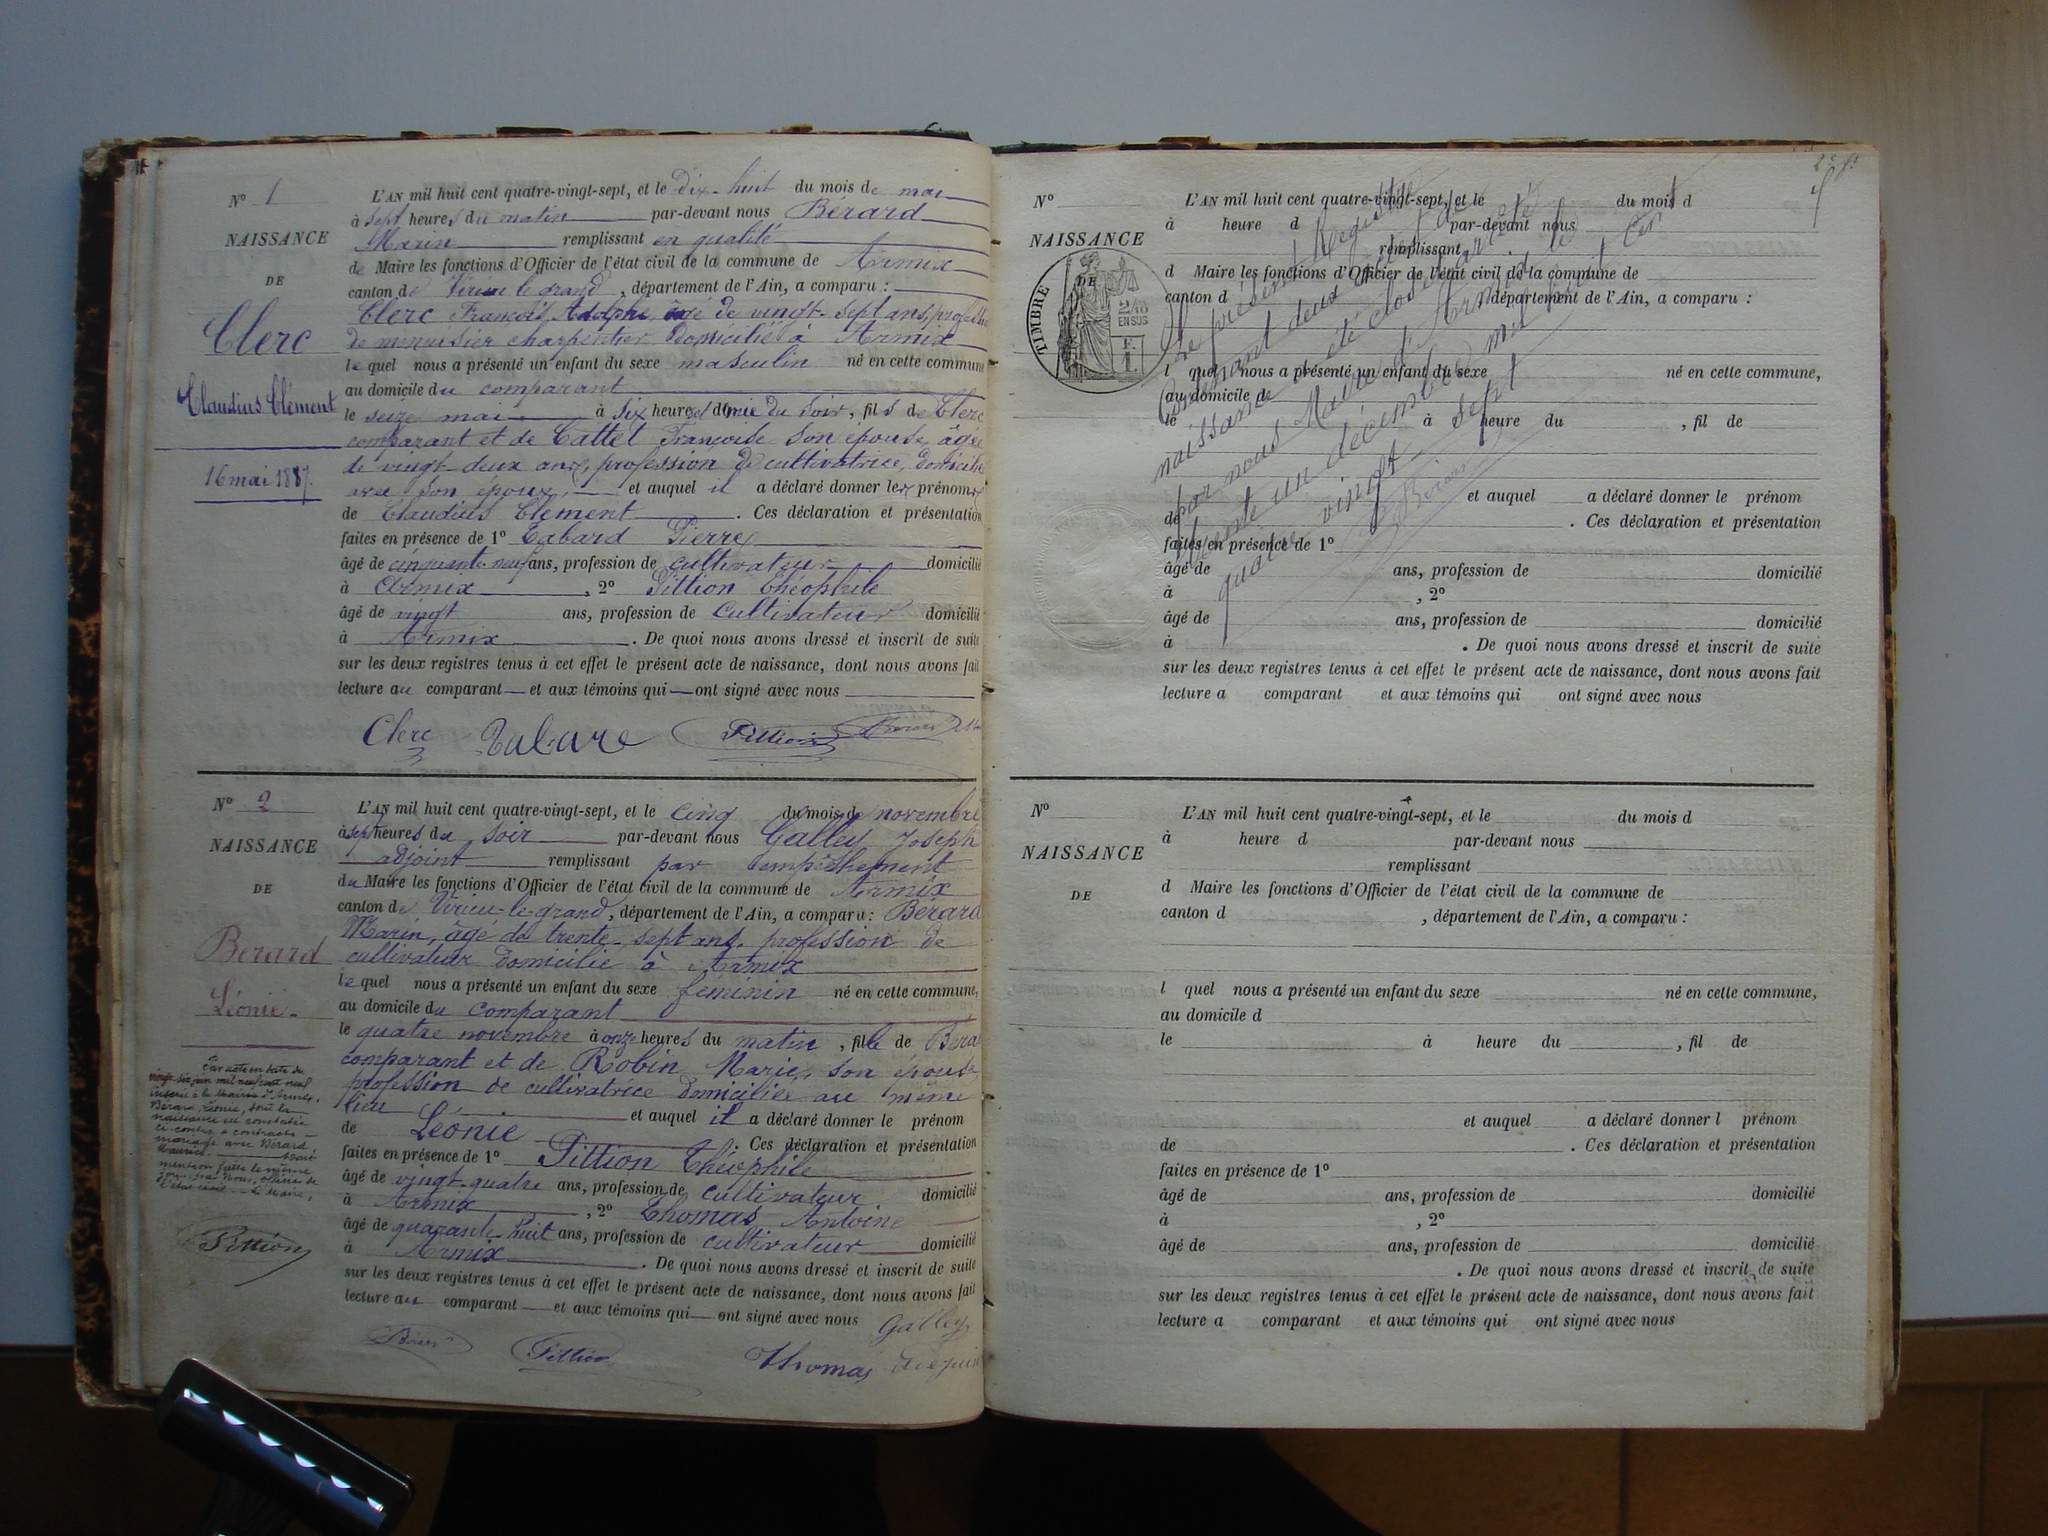 N° 1
NAISSANCE
DE
Clerc
Claudius Clément
16 mai 1887.
L'AN mil huit cent quatre-vingt-sept, et le dix-huit du mois de mai
à sept heures du matin par-devant nous Bérard
Marin remplissant en qualité
de Maire les fonctions d'Officier de l'état civil de la commune de Armix
canton de Virieu le grand, département de l'Ain, a comparu :
Clerc François Adolphe âgé de vingt-sept ans, profession
de menuisier charpentier domicilié à Armix
lequel nous a présenté un enfant du sexe masculin né en cette commune
au domicile du comparant
le seize mai à six heures et demie du soir, fils de Clerc
comparant et de Cattet Françoise son épouse, âgée
de vingt-deux ans, profession de cultivatrice, domiciliée
avec son époux, et auquel il a déclaré donner les prénoms
de Claudius Clément . Ces déclaration et présentation
faites en présence de 1° Tabard Pierre
âgé de cinquante-neuf ans, profession de cultivateur domicilié
à Armix , 2° Pittion Théophile
âgé de vingt ans, profession de cultivateur domicilié
à Armix . De quoi nous avons dressé et inscrit de suite
sur les deux registres tenus à cet effet le présent acte de naissance, dont nous avons fait
lecture au comparant et aux témoins qui ont signé avec nous
Clerc Pittion
N° 2
NAISSANCE
DE
Berard
Léonie
L'AN mil huit cent quatre-vingt-sept, et le cinq du mois de novembre
à sept heures du soir par-devant nous Galley Joseph
adjoint remplissant par empêchement
du Maire les fonctions d'Officier de l'état civil de la commune de Armix
canton de Virieu-le-grand, département de l'Ain, a comparu : Bérard
Marin, âgé de trente-sept ans, profession de
cultivateur domicilié à Armix
lequel nous a présenté un enfant du sexe féminin né en cette commune,
au domicile du comparant
le quatre novembre à onze heures du matin , fille de Bera
comparant et de Robin Marie, son épouse,
profession de cultivatrice domiciliée au même
lieu et auquel il a déclaré donner le prénom
de Léonie . Ces déclaration et présentation
faites en présence de 1° Pittion Théophile
âgé de vingt-quatre ans, profession de cultivateur domicilié
à Armix , 2° Thomas Antoine
âgé de quarante-huit ans, profession de cultivateur domicilié
à Armix . De quoi nous avons dressé et inscrit de suite
sur les deux registres tenus à cet effet le présent acte de naissance, dont nous avons fait
lecture au comparant et aux témoins qui ont signé avec nous
Galley
Pittion Thomas
Par acte en date du
six juin mil neuf cent neuf
inscrit à la Mairie d'Armix,
Bérard, Léonie, dont la
naissance est constatée
ci-contre a contracté
mariage avec Bérard
Maurice. Dont
mention faite le même
jour par Nous, officier de
l'état civil. Le Maire,
Pittion
N°
NAISSANCE
DE
TIMBRE
2/10
EN SUS
L'AN mil huit cent quatre-vingt-sept, et le du mois d
à heure d par-devant nous
remplissant
d Maire les fonctions d'Officier de l'état civil de la commune de
canton d , département de l'Ain, a comparu :
l quel nous a présenté un enfant du sexe né en cette commune,
au domicile d
le à heure du , fil de
et auquel a déclaré donner le prénom
de . Ces déclaration et présentation
faites en présence de 1°
âgé de ans, profession de domicilié
à , 2°
âgé de ans, profession de domicilié
à . De quoi nous avons dressé et inscrit de suite
sur les deux registres tenus à cet effet le présent acte de naissance, dont nous avons fait
lecture a comparant et aux témoins qui ont signé avec nous
Le présent Registre
contenant deux actes de
naissance a été clos et arrêté
par nous Maire d'Armix le
trente un décembre mil huit cent
quatre vingt sept
Bérard
N°
NAISSANCE
DE
L'AN mil huit cent quatre-vingt-sept, et le du mois d
à heure d par-devant nous
remplissant
d Maire les fonctions d'Officier de l'état civil de la commune de
canton d , département de l'Ain, a comparu :
l quel nous a présenté un enfant du sexe né en cette commune,
au domicile d
le à heure du , fil de
et auquel a déclaré donner l prénom
de . Ces déclaration et présentation
faites en présence de 1°
âgé de ans, profession de domicilié
à , 2°
âgé de ans, profession de domicilié
à . De quoi nous avons dressé et inscrit de suite
sur les deux registres tenus à cet effet le présent acte de naissance, dont nous avons fait
lecture a comparant et aux témoins qui ont signé avec nous